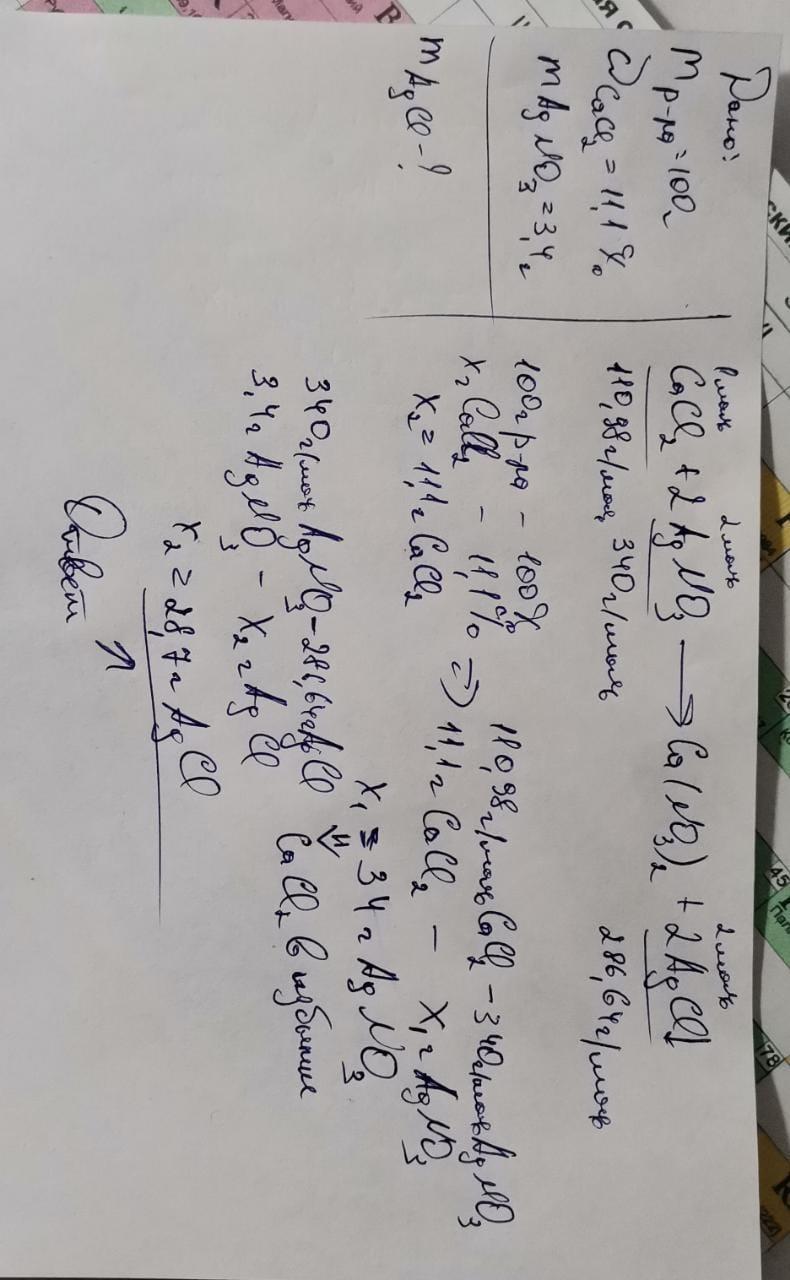 Дано:
m р-ра = 100г
ω CaCl2 = 11,1%
m AgNO3 = 3,4г
m AgCl - ?
1моль 2моль 2моль
CaCl2 + 2AgNO3 → Ca(NO3)2 + 2AgCl
110,98г/моль 340г/моль 286,64г/моль
100г р-ра - 100%
xг CaCl2 - 11,1% ⇒
x2 = 11,1г CaCl2
110,98г/моль CaCl2 - 340г/моль AgNO3
11,1г CaCl2 - x1г AgNO3
x1 = 34г AgNO3
⇓
CaCl2 в избытке
340г/моль AgNO3 - 286,64г AgCl
3,4г AgNO3 - x2г AgCl
x2 = 28,7г AgCl
Ответ ↑
45
78